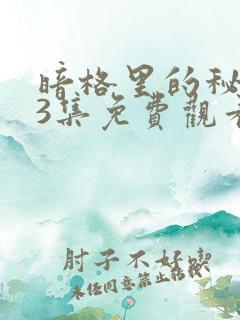 暗格里的秘
3集免費觀看
肘子不好喫
未经同意禁止转载